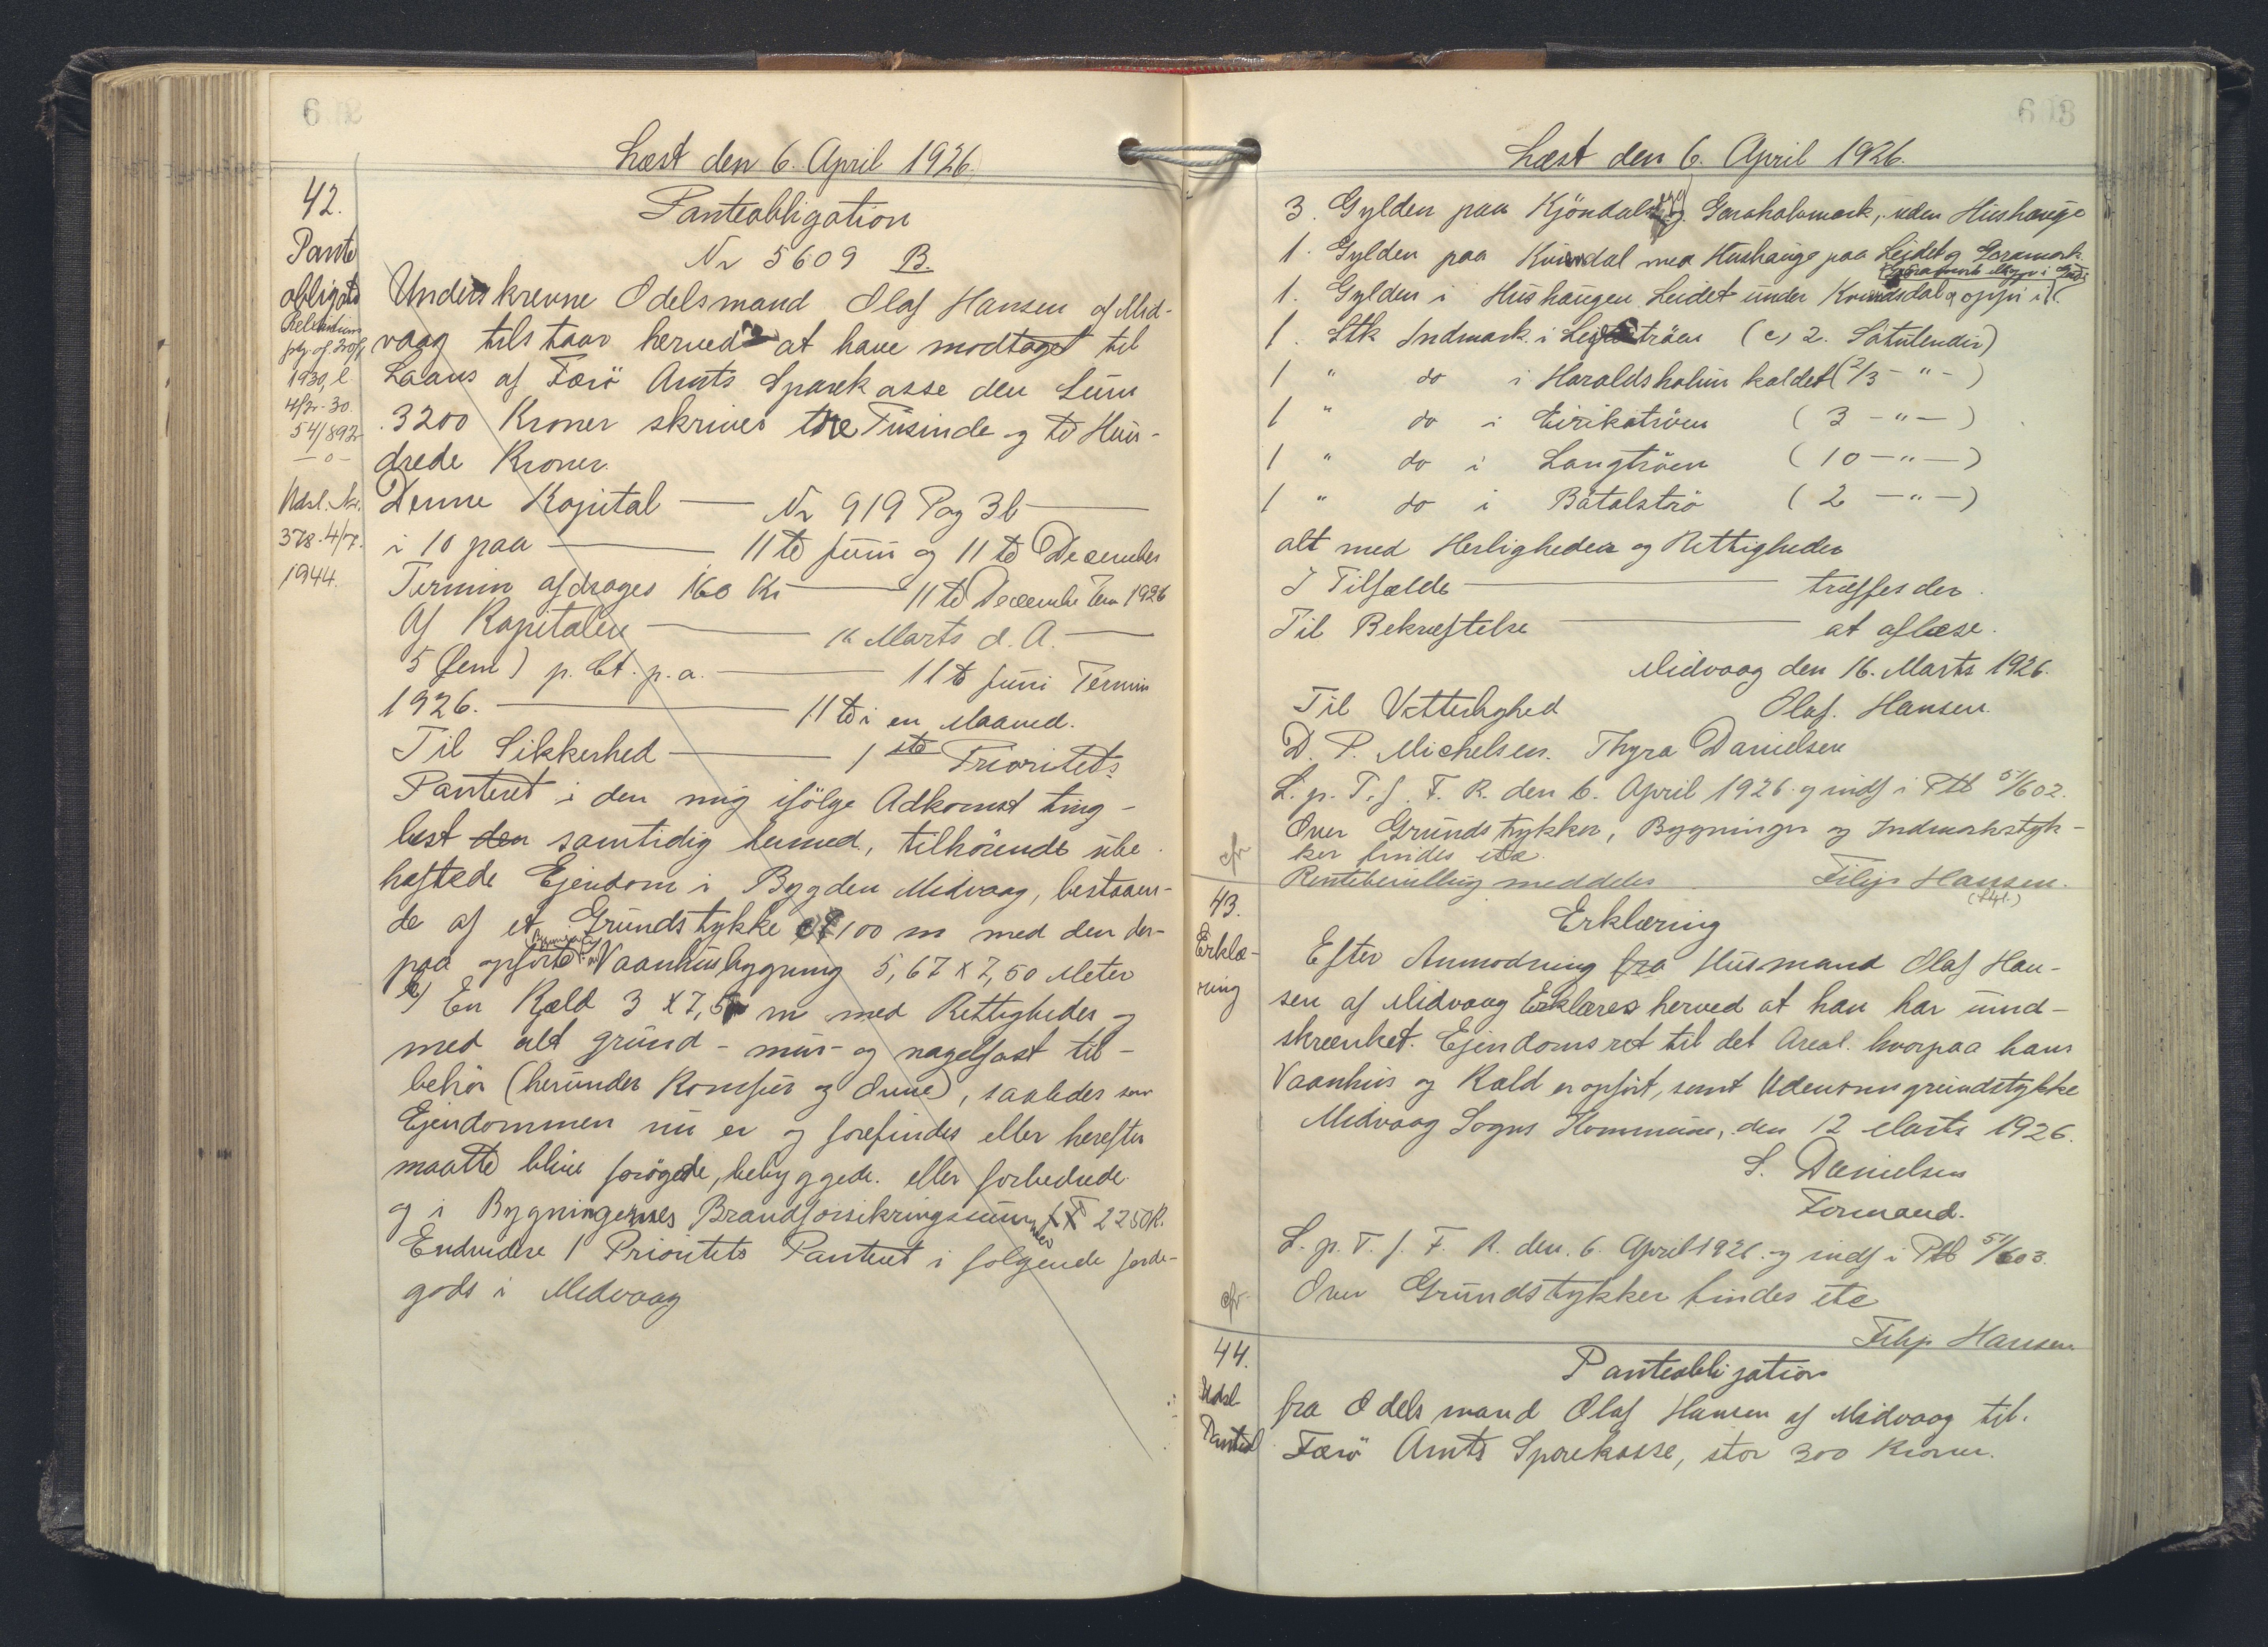 Læst den 6. April 1926.
42.
Pante
obligati
1930, l.
4/7-30.
54/892
- o -
Udsl. Nr.
378-4/7.
1944.
Panteobligation
Nr 5609 B.
Underskrevne Odelsmand Olaf Hansen af Mid-
vaag tilstaar herved at have modtaget til
Laans af Færö Amts Sparekasse den Sum
3200 Kroner skriver tre Tusinde og to Hun-
drede Kroner.
Denne Kapital — Nr 919 Pag 36 —
i 10 paa — 11te Juni og 11te December
Termin afdrages 160 Kr — 11te December Term 1926
Af Kapitalen — 16 Marts d. A. —
5 (fem) p. Ct. p. a. — 11te Juni Termin
1926. — 11te i en Maaned.
Til Sikkerhed — 1ste Prioritets
Panteret i den mig ifölge Adkomst ting-
læst den samtidig hermed, tilhörende ube
hæftede Ejendom i Bygden Midvaag, bestaaen-
de af et Grundstykke 100 m med den der-
paa opförte Vaanhusbygning 5,67 x 7,50 Meter
b) En Kjæld 3 x 7,5 m med Rettigheder og
med alt grund- mur- og nagelfast til-
behör (herunder Komfur og Ovne), saaledes som
Ejendommen nu er og forefindes eller herefter
maatte blive forögede, bebyggede eller forbedrede
og i Bygningernes Brandforsikringssum 2250 K.
Endvidere 1 Prioritets Panteret i fölgende Jorde-
gods i Midvaag
Læst den 6. April 1926.
3. Gylden paa Kjöndals og Garahalsmark, uden Hushauge
1. Gylden paa Kvindal med Hushauge paa Leidet og Garemark
1. Gylden i Hushaugen Leidet under Kvindsdal og oppi i
1. Stk Indmark i (c, 2. Sátulendir)
1 " do i Haraldsholm kaldet (2/3 - " -)
1 " do i Eirikatröen (3 - " -)
1 " do i Langtröen (10 - " -)
1 " do i Bátalströ (2 - " -)
alt med Herligheder og Rettigheder
I Tilfælde — træffes der.
Til Bekræftelse — at aflæse.
Midvaag den 16. Marts 1926.
Til Vitterlighed Olaf. Hansen.
D. P. Michelsen. Thyra Danielsen
L. p. T. f. F. R. den 6. April 1926 og indf i Ptb 51/602.
Over Grundstykker, Bygninger og Indmarkstyk-
cfr ker findes etc.
Rentebevilling meddeles Filip Hansen.
43.
Erklæ-
ring
Erklæring
Efter Anmodning fra Husmand Olaf Han-
sen af Midvaag Erklæres herved at han har uind-
skrænket. Ejendomsret til det Areal. hvorpaa hans
Vaanhus og Kæld er opfört, samt Udenomsgrundstykke
Midvaag Sogns Kommune, den 12 Marts 1926.
S. Danielsen
Formand.
L. p. T. f. F. R. den. 6. April 1926. og indf i Ptb 51/603.
cfr Over Grundstykker findes etc
Filip Hansen.
44.
Udsl
Panteobl
Panteobligation
fra Odelsmand Olaf Hansen af Midvaag til.
Færö Amts Sparekasse, stor 300 Kroner.